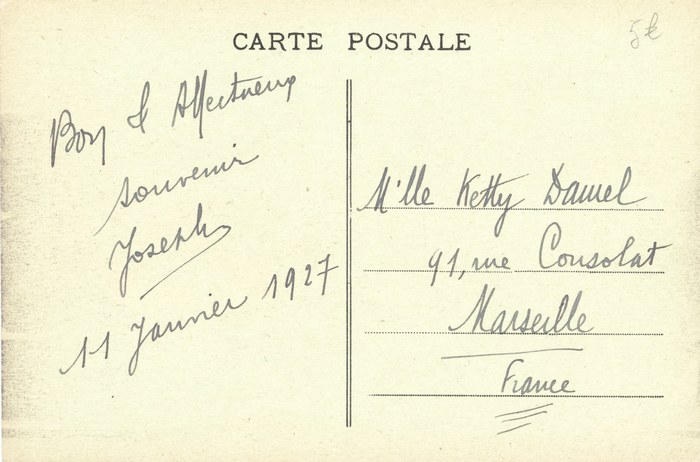 CARTE POSTALE
5€
Bon & Affectueux
souvenir
Joseph
11 Janvier 1927
M'lle Ketty Daniel
91, rue Consolat
Marseille
France